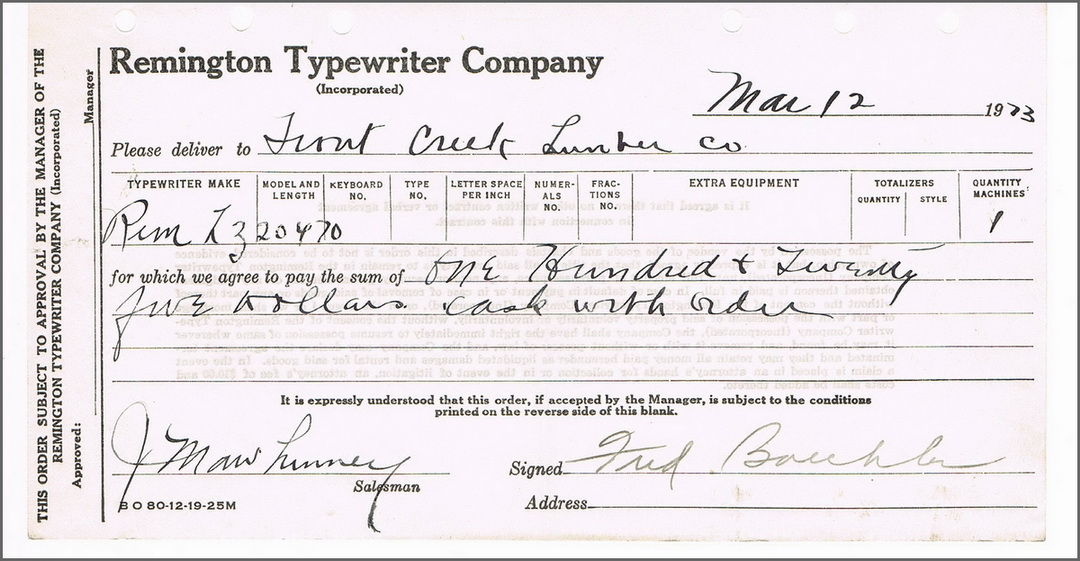 Remington Typewriter Company
(Incorporated)
Mar 12 1923
Please deliver to Trout Creek Lumber Co
TYPEWRITER MAKE MODEL AND LENGTH KEYBOARD NO. TYPE NO. LETTER SPACE PER INCH NUMER-ALS NO. FRAC-TIONS NO. EXTRA EQUIPMENT TOTALIZERS QUANTITY STYLE QUANTITY MACHINES
Rem 20470 1
for which we agree to pay the sum of One Hundred + Twenty
five Dollars cash with order
It is expressly understood that this order, if accepted by the Manager, is subject to the conditions
printed on the reverse side of this blank.
Signed Fred
Salesman
B O 80-12-19-25M
Address
THIS ORDER SUBJECT TO APPROVAL BY THE MANAGER OF THE
REMINGTON TYPEWRITER COMPANY (Incorporated)
Approved: Manager